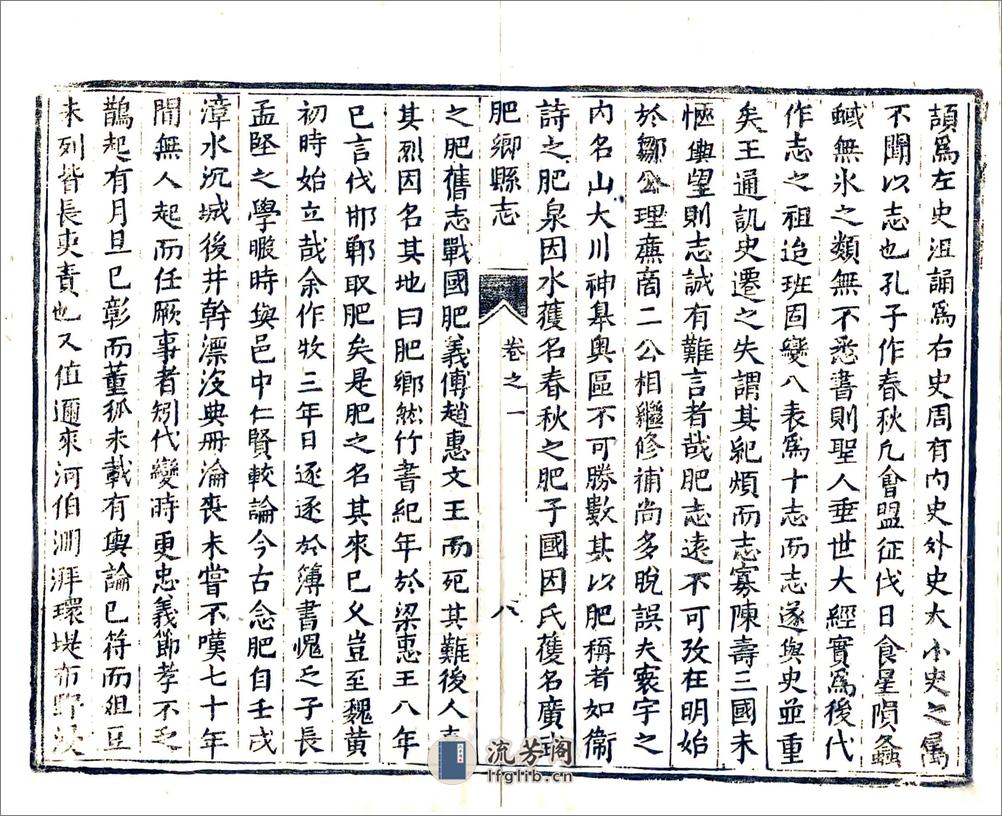 頡爲左史沮誦爲右史周有内史外史大小史之屬
不聞以志也孔子作春秋凡會盟征伐日食星隕螽
蜮無氷之類無不悉書則聖人垂世大經實爲後代
作志之祖迨班固變八表爲十志而志遂與史並重
矣王通譏史遷之失謂其紀煩而志寡陳壽三國未
愜輿望則志誠有難言者哉肥志遠不可攷在明始
於鄒公理齋商二公相繼修補尚多脫誤夫寰宇之
内名山大川神皋奥區不可勝數其以肥稱者如衞
詩之肥泉因水獲名春秋之肥子國因氏獲名廣
肥鄉縣志
卷之一
八
之肥舊志戰國肥義傅趙惠文王而死其難後人
其烈因名其地曰肥鄉然竹書紀年於梁惠王八年
已言伐邯鄲取肥矣是肥之名其來已乆豈至魏黄
初時始立哉余作牧三年日逐逐於簿書愧乏子長
孟堅之學暇時與邑中仁賢較論今古念肥自壬戌
漳水沉城後井幹漂没典册淪喪未嘗不嘆七十年
間無人起而任厥事者矧代變時更忠義節孝不乏
鵲起有月旦已彰而董狐未載有輿論已符而俎豆
未列皆長吏責也又值邇來河伯澎湃環堤市野
流芳阁
lfglib.cn